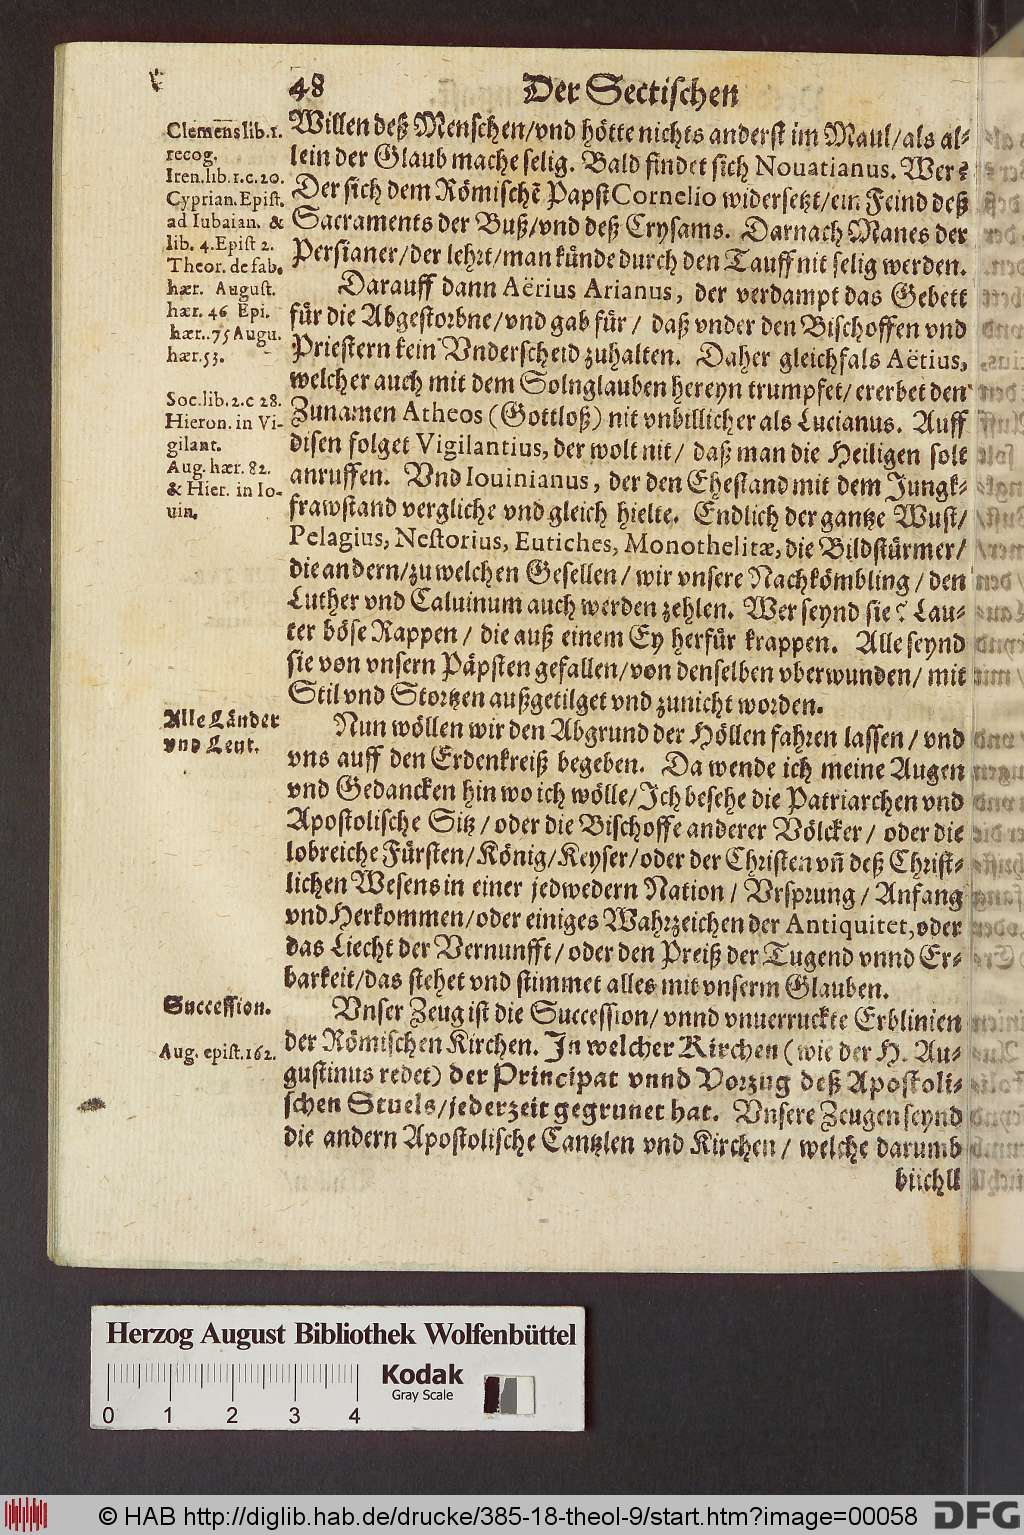 48 Der Sectischen
Willen deß Menschen/vnd hötte nichts anderst im Maul/als al-
lein der Glaub mache selig. Bald findet sich Nouatianus. Wer?
Der sich dem Römischẽ Papst Cornelio widersetzt/ein Feind deß
Sacraments der Buß/vnd deß Crysams. Darnach Manes der
Persianer/der lehrt/man künde durch den Tauff nit selig werden.
Darauff dann Aërius Arianus, der verdampt das Gebett
für die Abgestorbne/vnd gab für/ daß vnder den Bischoffen vnd
Priestern kein Vnderscheid zuhalten. Daher gleichfals Aëtius,
welcher auch mit dem Solnglauben hereyn trumpfet/ ererbet den
Zunamen Atheos (Gottloß) nit vnbillicher als Lucianus. Auff
disen folget Vigilantius, der wolt nit/ daß man die Heiligen solt
anruffen. Vnd Iouinianus, der den Ehestand mit dem Jungk-
frawstand vergliche vnd gleich hielte. Endlich der gantze Wust/
Pelagius, Nestorius, Eutiches, Monothelitæ, die Bildstürmer/
die andern/zu welchen Gesellen/ wir vnsere Nachkömbling/ den
Luther vnd Caluinum auch werden zehlen. Wer seynd sie? Lau-
ter böse Rappen/ die auß einem Ey herfür krappen. Alle seynd
sie von vnsern Päpsten gefallen/von denselben vberwunden/ mit
Stil vnd Stortzen außgetilget vnd zunicht worden.
Nun wöllen wir den Abgrund der Höllen fahren lassen/ vnd
vns auff den Erdenkreiß begeben. Da wende ich meine Augen
vnd Gedancken hin wo ich wölle/Ich besehe die Patriarchen vnd
Apostolische Sitz/ oder die Bischoffe anderer Völcker/ oder die
lobreiche Fürsten/König/Keyser/oder der Christen vñ deß Christ-
lichen Wesens in einer jedwedern Nation/ Vrsprung/ Anfang
vnd Herkommen/oder einiges Wahrzeichen der Antiquitet, oder
das Liecht der Vernunfft/ oder den Preiß der Tugend vnnd Er-
barkeit/das stehet vnd stimmet alles mit vnserm Glauben.
Vnser Zeug ist die Succession/ vnnd vnuerruckte Erblinien
der Römischen Kirchen. In welcher Kirchen (wie der H. Au-
gustinus redet) der Principat vnnd Vorzug deß Apostoli-
schen Stuels/jederzeit gegrunet hat. Vnsere Zeugen seynd
die andern Apostolische Cantzlen vnd Kirchen/ welche darumb
büchll
Clemens lib. 1.
recog.
Iren. lib. 1. c. 20.
Cyprian. Epist.
ad Iubaian. &
lib. 4. Epist 2.
Theor. de fab.
hær. August.
hær. 46 Epi.
hær.. 75 Augu.
hær. 53.
Soc. lib. 2. c 28.
Hieron. in Vi-
gilant.
Aug. hær. 82.
& Hier. in Io-
uin.
Alle Länder
vnd Leut.
Succession.
Aug. epist. 162.
Herzog August Bibliothek Wolfenbüttel
Kodak
Gray Scale
0 1 2 3 4
© HAB http://diglib.hab.de/drucke/385-18-theol-9/start.htm?image=00058
DFG